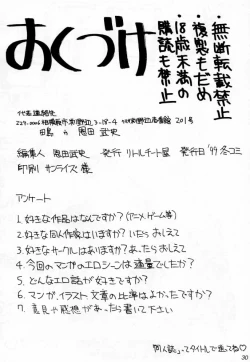 おくづけ
・無断転載禁止
・複製もだめ
・18歳未満の
購読も禁止
代表連絡先
201号
恩田 武史
編集人 恩田武史 発行 リトルチート屋 発行日'99冬コミ
印刷 サンライズ
アンケート
1.好きな作品はなんですか?(アニメ、ゲーム等)
2.好きな同人作家はいますか?いたらおしえて
3.好きなサークルはありますか?あったらおしえて
4.今回のマンガのエロシーンは適量でしたか?
5.どんなエロ話が好きですか?
6.マンガ、イラスト文章の比率はよかったですか?
7.意見や感想があったら書いて下さい
30